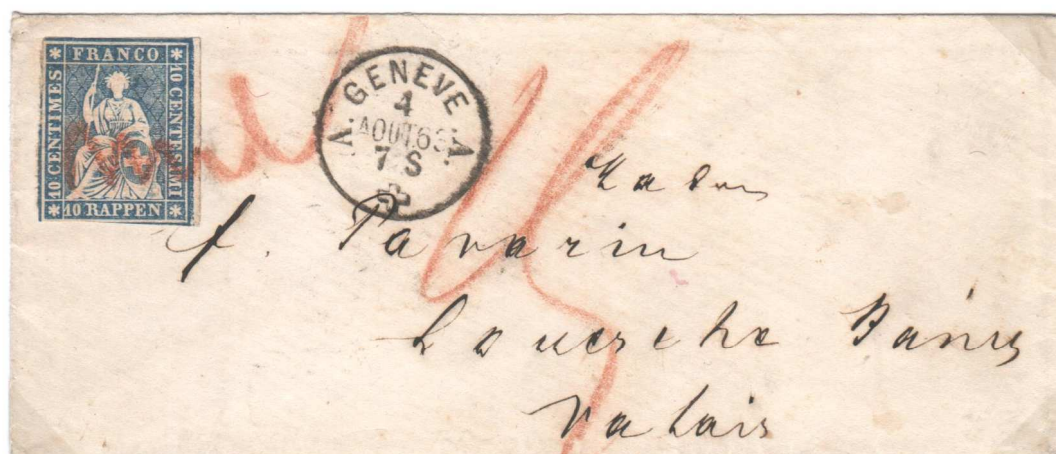 FRANCO
10 CENTIMES
10 CENTESIMI
10 RAPPEN
GENEVE
4
AOUT 63
7 S
A A
f. Pavarin
Louesche Bains
Valais